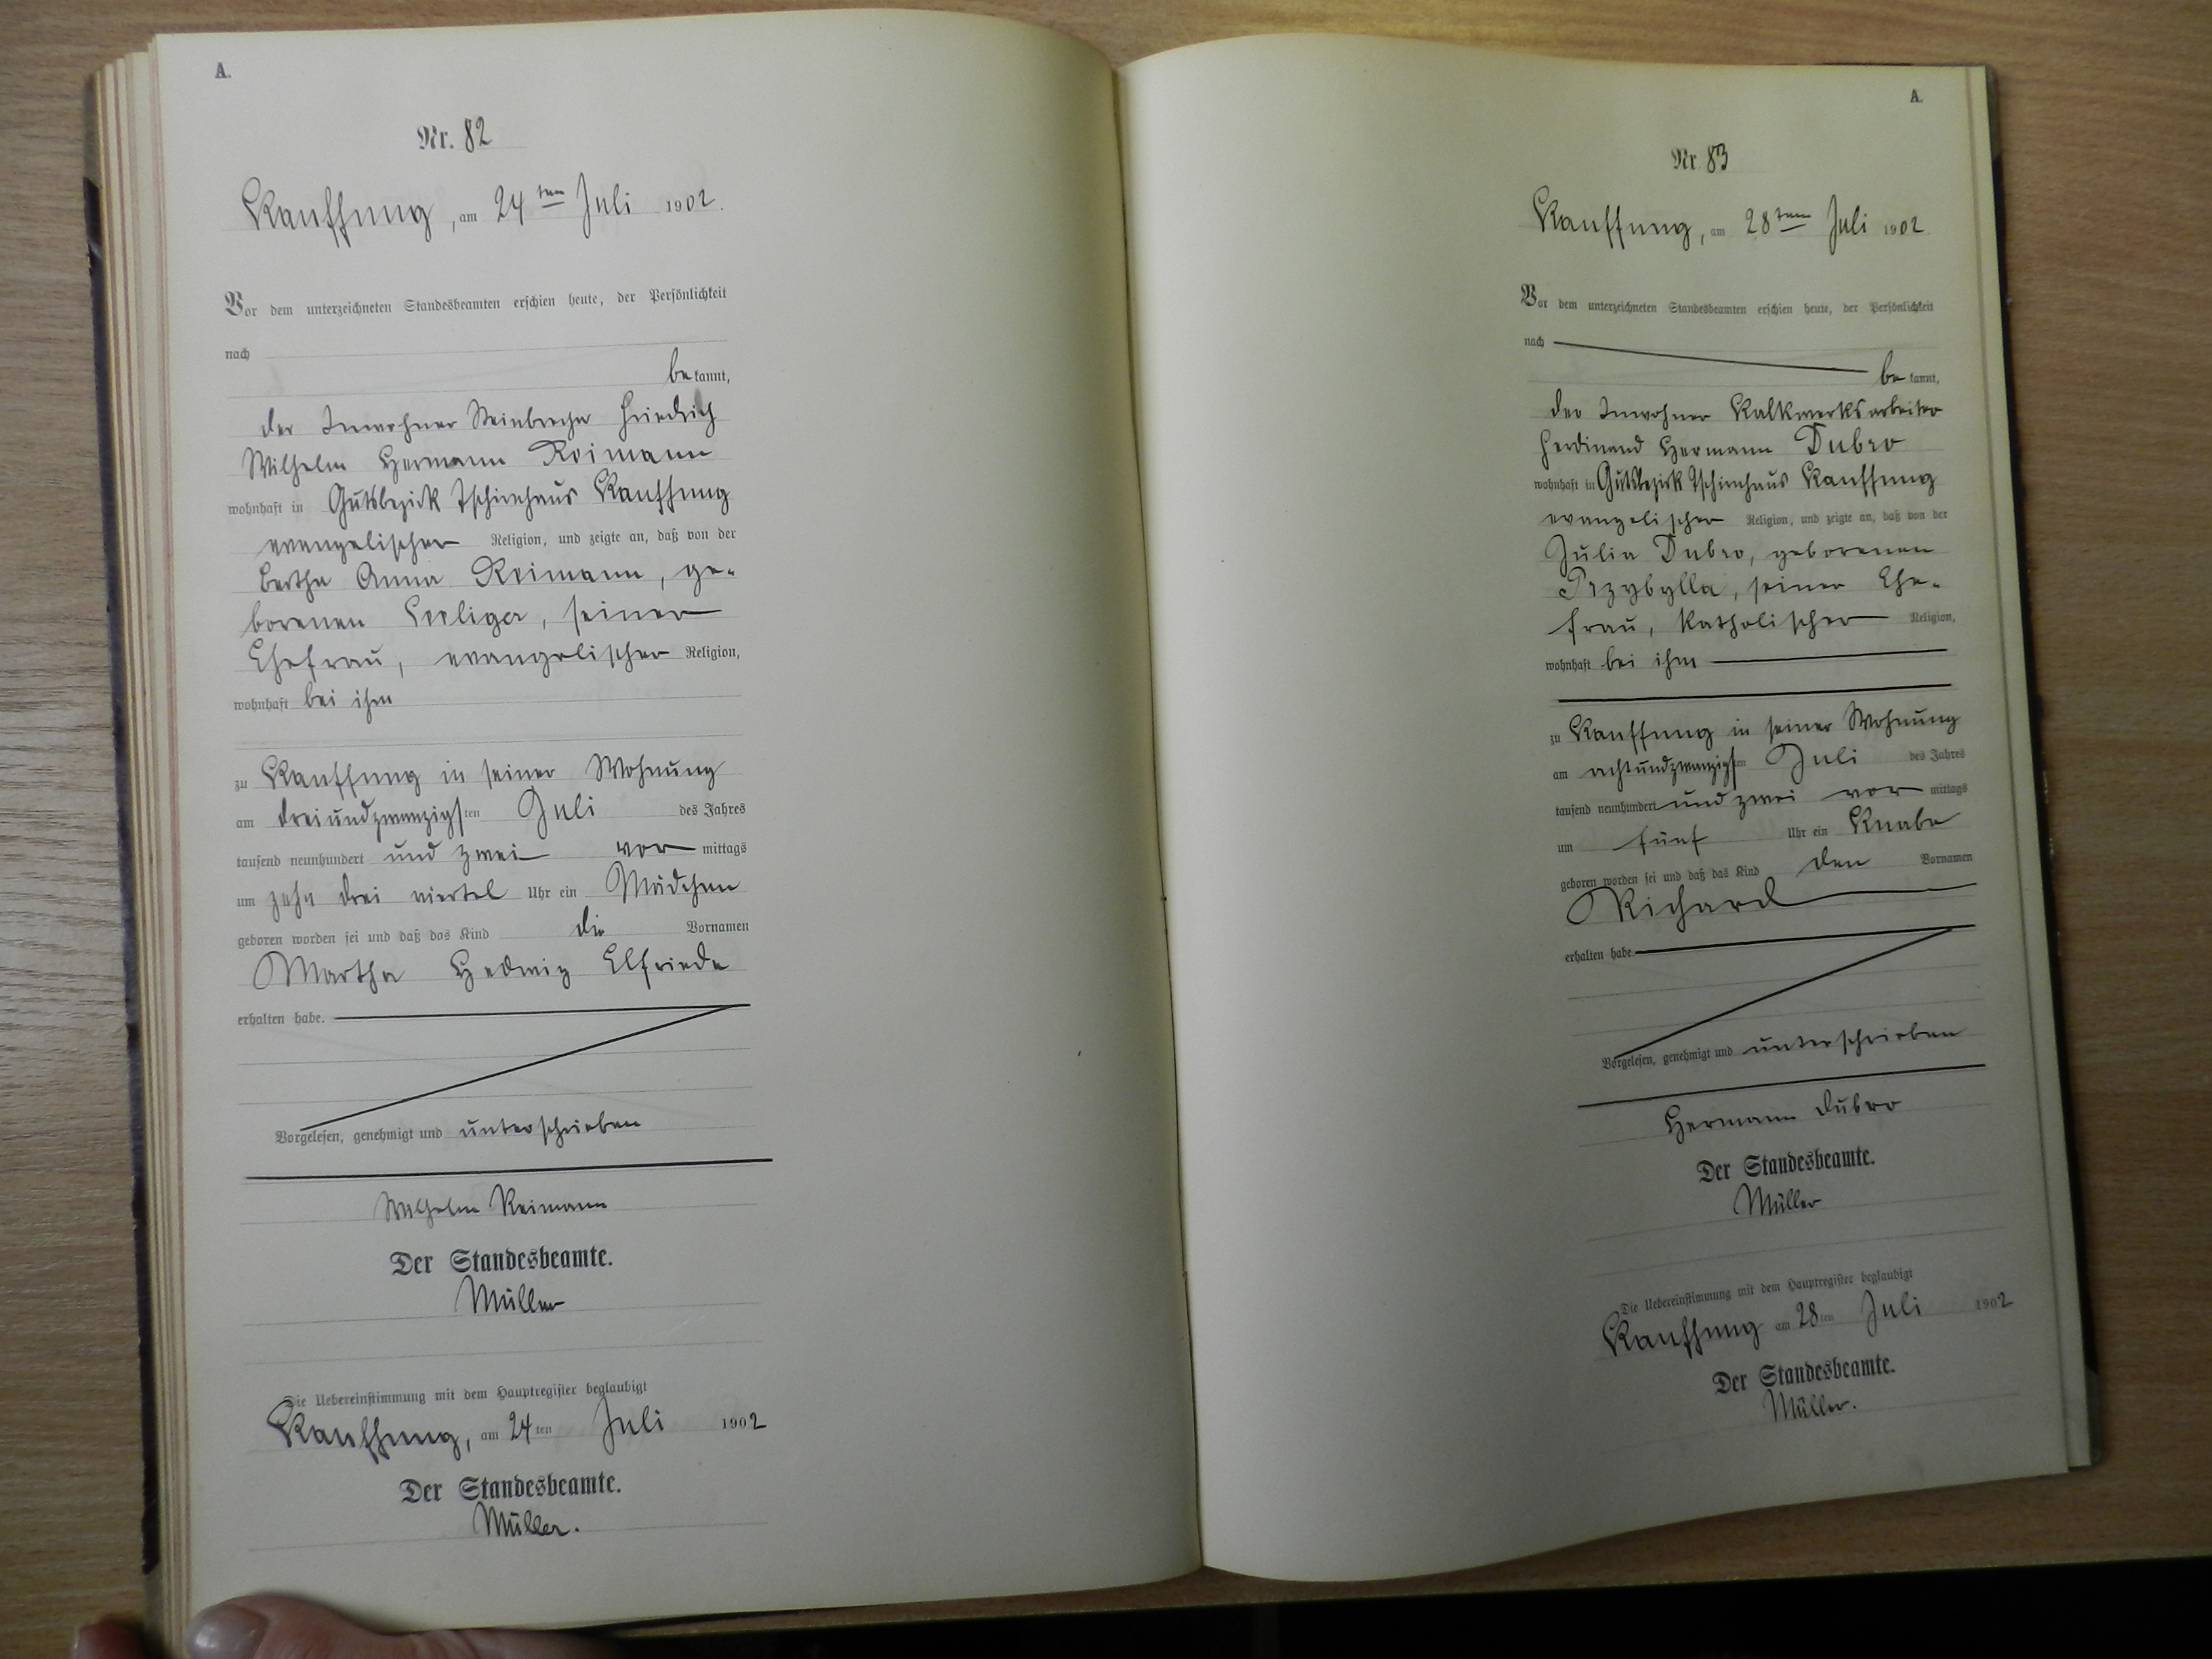 A.
Nr. 82
Kauffung, am 24ten Juli 1902.
Vor dem unterzeichneten Standesbeamten erschien heute, der Persönlichkeit
nach
bekannt,
der Inwohner Steinbrecher Friedrich
Wilhelm Hermann Reimann
wohnhaft in Gutsbezirk Tschirnhaus Kauffung
evangelischer Religion, und zeigte an, daß von der
Bertha Anna Reimann, ge-
borenen Seeliger, seiner
Ehefrau, evangelischer Religion,
wohnhaft bei ihm
zu Kauffung in seiner Wohnung
am dreiundzwanzigsten Juli des Jahres
tausend neunhundert und zwei vormittags
um zehn drei viertel Uhr ein Mädchen
geboren worden sei und daß das Kind die Vornamen
Martha Hedwig Elfriede
erhalten habe.
Vorgelesen, genehmigt und unterschrieben
Wilhelm Reimann
Der Standesbeamte.
Müller
Die Uebereinstimmung mit dem Hauptregister beglaubigt
Kauffung, am 24ten Juli 1902
Der Standesbeamte.
Müller.
A.
Nr. 83
Kauffung, am 28ten Juli 1902.
Vor dem unterzeichneten Standesbeamten erschien heute, der Persönlichkeit
nach
bekannt,
der Inwohner Kalkwerksarbeiter
Ferdinand Hermann Dubro
wohnhaft in Gutsbezirk Tschirnhaus Kauffung
evangelischer Religion, und zeigte an, daß von der
Julia Dubro, geborenen
Przybylla, seiner Ehe-
frau, katholischer Religion,
wohnhaft bei ihm
zu Kauffung in seiner Wohnung
am achtundzwanzigsten Juli des Jahres
tausend neunhundert und zwei vormittags
um fünf Uhr ein Knabe
geboren worden sei und daß das Kind den Vornamen
Richard
erhalten habe.
Vorgelesen, genehmigt und unterschrieben
Hermann Dubro
Der Standesbeamte.
Müller
Die Uebereinstimmung mit dem Hauptregister beglaubigt
Kauffung am 28ten Juli 1902
Der Standesbeamte.
Müller.